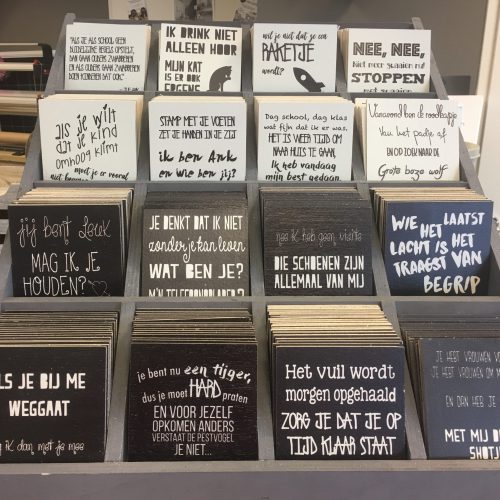 "ALS JE ALS SCHOOL GEEN
DUIDELIJKE REGELS OPSTELT,
DAN GAAN OUDERS ZWABBEREN
EN ALS OUDERS ZWABBEREN
DOEN KINDEREN DAT OOK"
IK DRINK NIET
ALLEEN HOOR
MIJN
KAT
IS ER OOK
ERGENS
wil je niet dat je een
RAKETJE
wordt?
NEE, NEE,
Niet meer graaien nu!
STOPPEN
met graaien
als je wilt
dat je kind
omhoog klimt
moet je er vooral
niet
STAMP MET JE VOETEN
ZET JE HANDEN IN JE ZIJ
ik ben Ank
en Wie ben jij?
Dag school, dag klas
wat fijn dat ik er was.
HET IS WEER TIJD OM
NAAR HUIS TE GAAN,
IK heb vandaag
mijn best gedaan.
Vanavond ben ik roodkapje
Van het padje af
EN OP ZOEK NAAR DE
Grote boze wolf
jij bent leuk
MAG IK JE
HOUDEN?
JE DENKT DAT IK NIET
zonder je kan leven
WAT BEN JE?
M'N TELEFOONOPLADER?
nee ik heb geen visite
DIE SCHOENEN ZIJN
ALLEMAAL VAN MIJ
WIE HET LAATST
LACHT IS HET
TRAAGST VAN
BEGRIP
ALS JE BIJ ME
WEGGAAT
mag ik dan met je mee
je bent nu een tijger,
dus je moet HARD praten
EN VOOR JEZELF
OPKOMEN ANDERS
VERSTAAT DE PESTVOGEL
JE NIET...
Het vuil wordt
morgen opgehaald
ZORG JE DAT JE OP
TIJD KLAAR STAAT
JE HEBT VROUWEN
JE HEBT VROUWEN OM
EN DAN HEB JE
MET MIJ